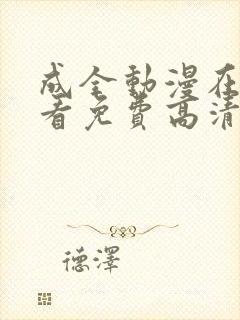 成全動漫在
看免費高清
德澤